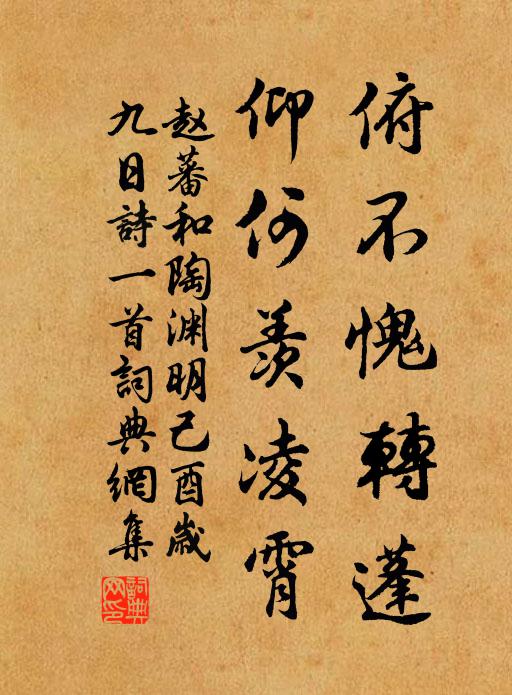 俯不愧轉蓬
仰何羨凌霄
赵蕃和陶渊明己酉歲
九日詩一首詞典網集
詞典网印